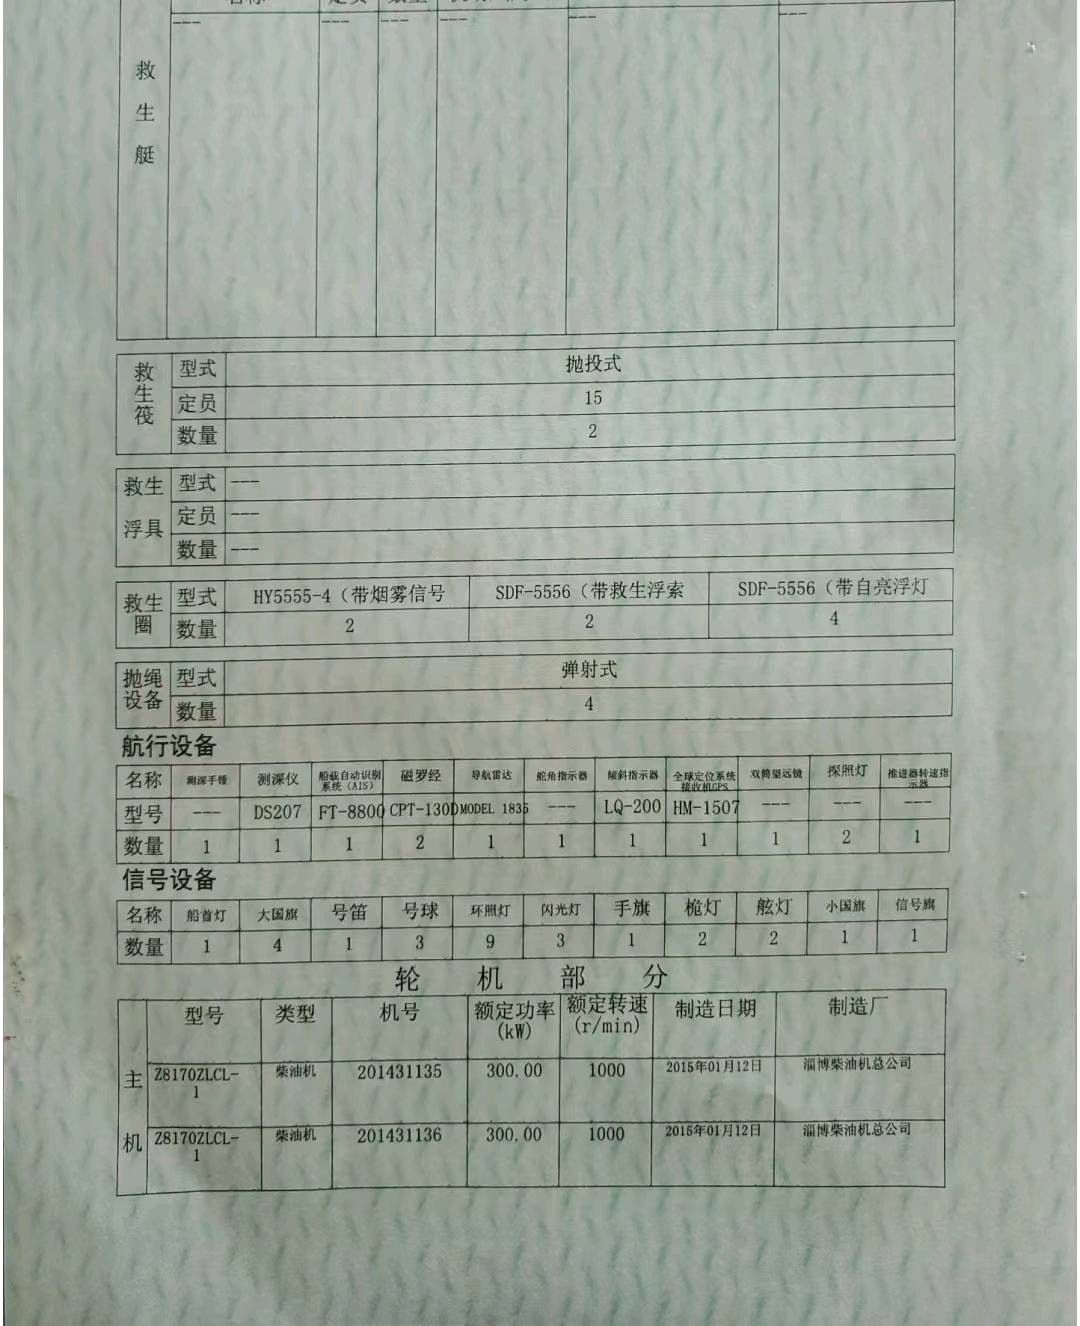 名称 定员 数量
--- --- --- --- --- ---
救
生
艇
救生筏 型式 抛投式
定员 15
数量 2
救生浮具 型式 ---
定员 ---
数量 ---
救生圈 型式 HY5555-4（带烟雾信号 SDF-5556（带救生浮索 SDF-5556（带自亮浮灯
数量 2 2 4
抛绳设备 型式 弹射式
数量 4
航行设备
名称 测深手锤 测深仪 船载自动识别系统（AIS） 磁罗经 导航雷达 舵角指示器 倾斜指示器 全球定位系统接收机GPS 双筒望远镜 探照灯 推进器转速指示器
型号 --- DS207 FT-8800 CPT-130D MODEL 1835 --- LQ-200 HM-1507 --- --- ---
数量 1 1 1 2 1 1 1 1 1 2 1
信号设备
名称 船首灯 大国旗 号笛 号球 环照灯 闪光灯 手旗 桅灯 舷灯 小国旗 信号旗
数量 1 4 1 3 9 3 1 2 2 1 1
轮机部分
型号 类型 机号 额定功率(kW) 额定转速(r/min) 制造日期 制造厂
主机
Z8170ZLCL-1 柴油机 201431135 300.00 1000 2015年01月12日 淄博柴油机总公司
Z8170ZLCL-1 柴油机 201431136 300.00 1000 2015年01月12日 淄博柴油机总公司